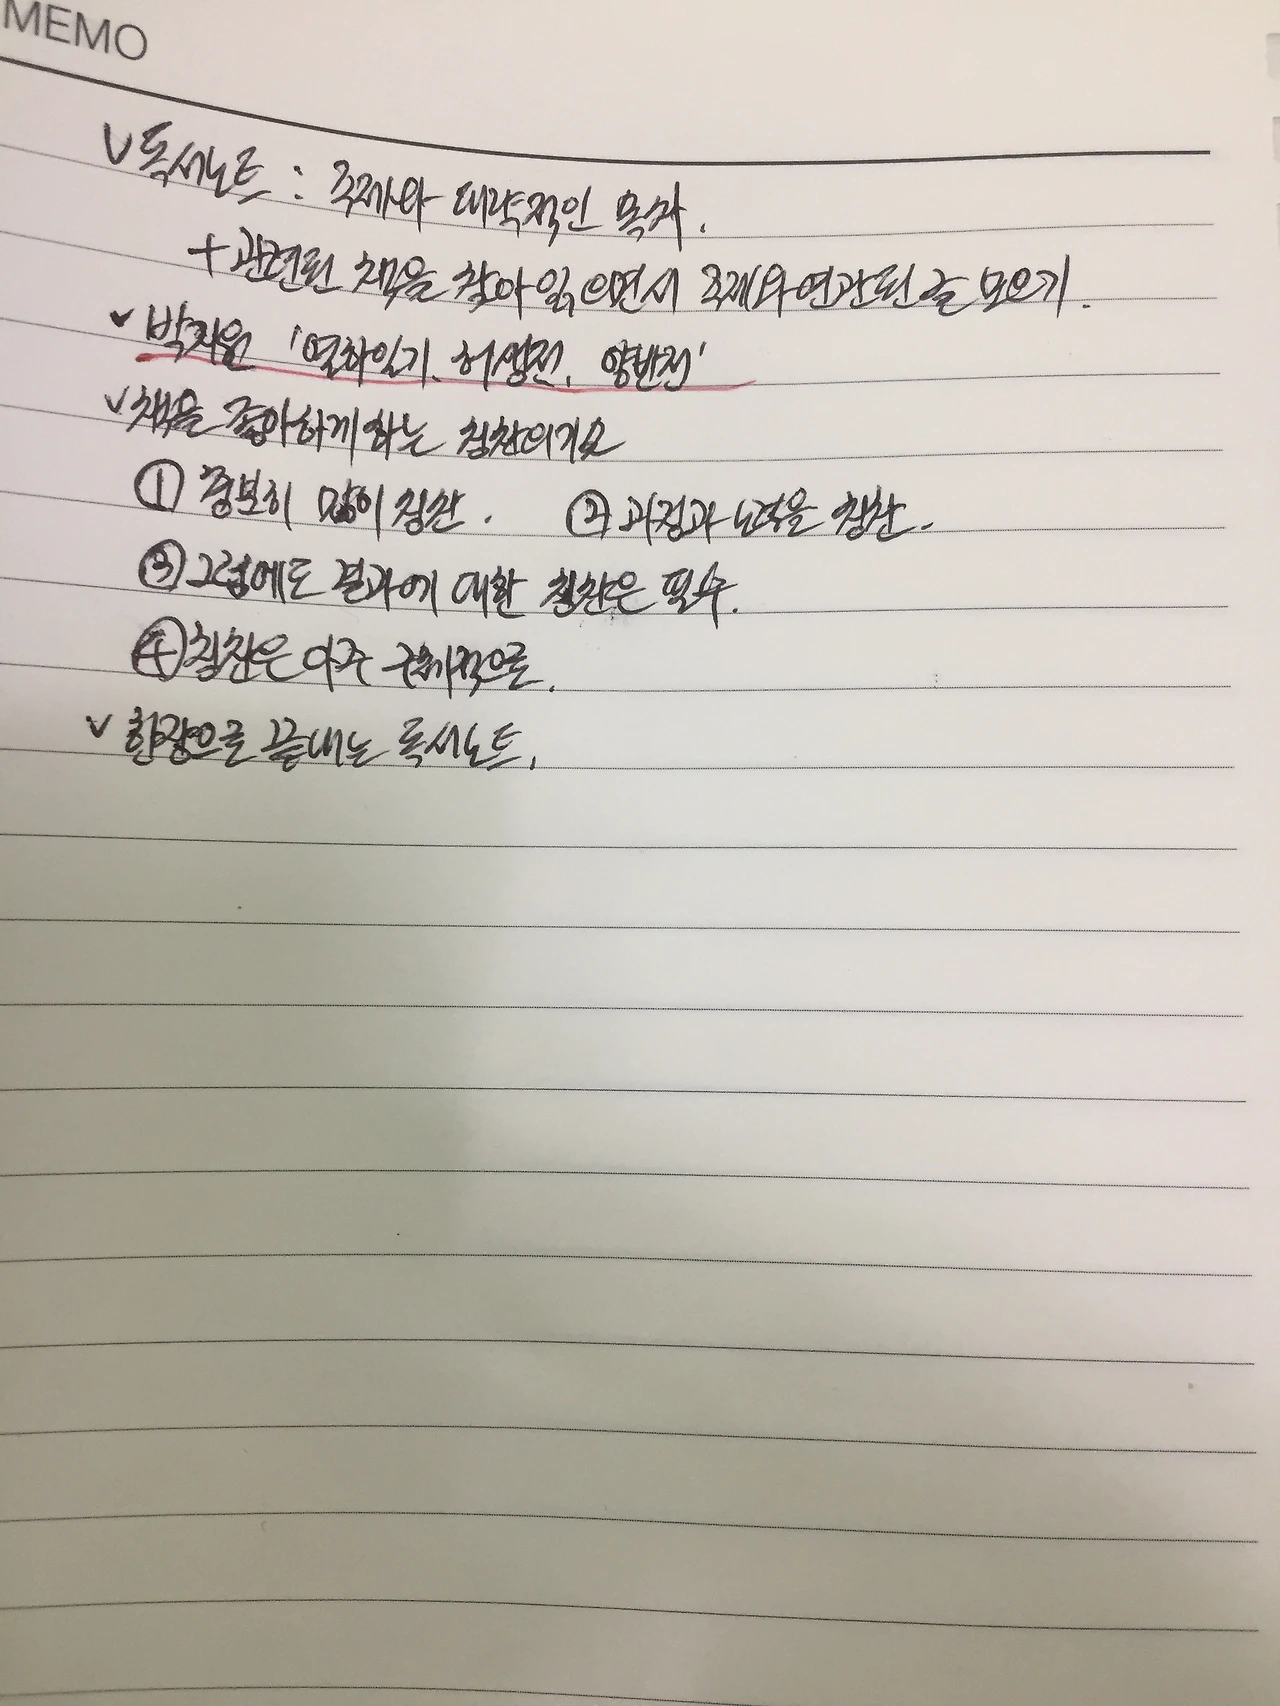 MEMO
V 독서노트 : 주제와 대략적인 목차.
+ 관련된 책을 찾아 읽으면서 주제와 연관된 글 모으기.
V 박지원 '열하일기, 허생전, 양반전'
V 책을 좋아하게 하는 칭찬의 기술
① 충분히 많이 칭찬. ② 과정과 노력을 칭찬.
③ 그럼에도 결과에 대한 칭찬은 필수.
④ 칭찬은 아주 구체적으로.
V 한장으로 끝내는 독서노트.